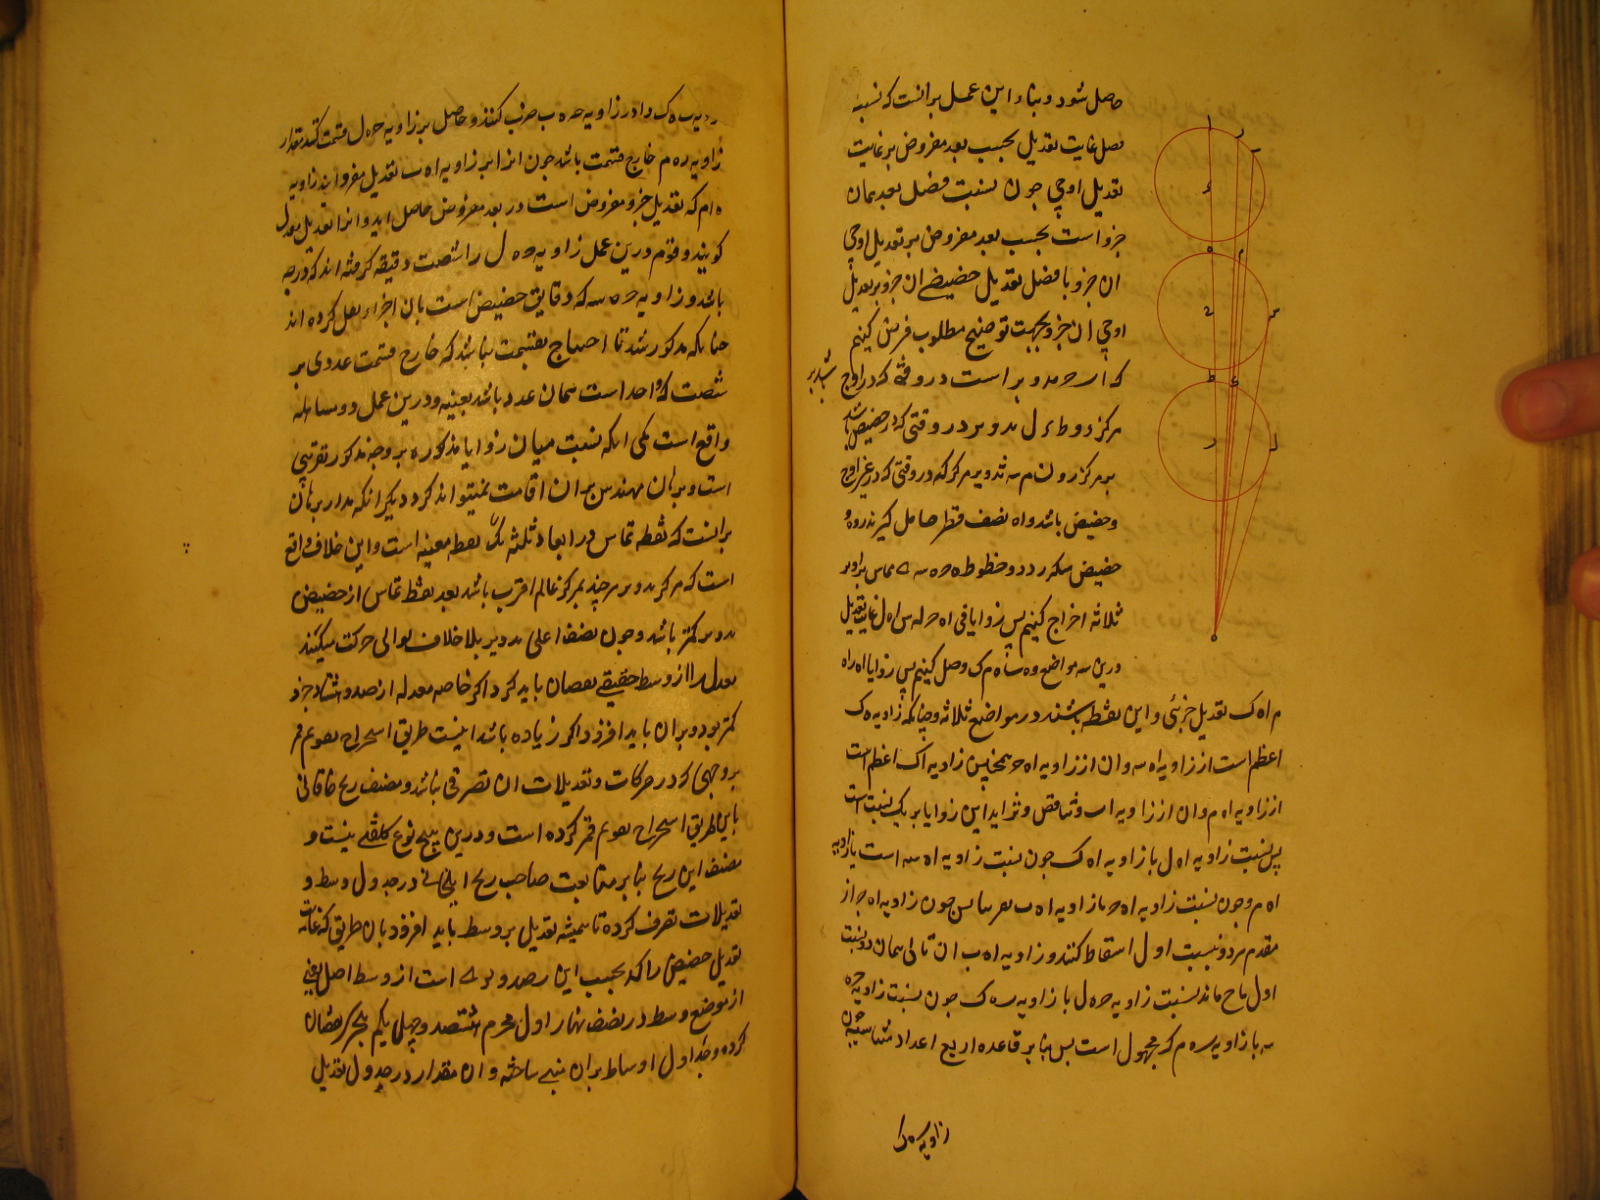 حاصل شود و بناء این عمل بر انست که نسبه
فصل غایت تعدیل بحسب بعد مفروض بر غایت
تعدیل اوجی چون نسبت فضل بعد همان
جزو است بحسب بعد مفروض بر تعدیل اوجی
ان جزو با فضل تعدیل حضیضی ان جزو بر تعدیل
اوجی ان جزو بجهت توضیح مطلوب فرض کنیم
که ا ر ح تدویر است در وقتی که در اوج
باشد بر
مرکز د و ط ء ل تدویر در وقتی که در حضیض باشد
بر مرکز ر و ن م سه تدویر مرکز که در وقتی که در غیر اوج
و حضیض باشد و اه نصف قطر حامل گیرند
حضیض و خطوط ه ح ه سه ه مماس تداویر
ثلاثه اخراج کنیم پس زوایای اه ح اه س اه ل غایت تعدیل
درین سه مواضع و ه ب ه م ه ک وصل کنیم پس زوایا
م اه ک تعدیل جزئی و این نقطه باشند در مواضع ثلاثه و چنانکه زاویه ه ک
اعظم است از زاویه اه سه و ان از زاویه اه ح همچنین زاویه اک اعظم است
از زاویه اه م و ان از زاویه اب و تناقص و تزاید این زوایا بر یک نسبت است
پس نسبت زاویه اه ل با زاویه اه ک چون نسبت زاویه اه سه است با زاویه
اه م و چون نسبت زاویه اه ح با زاویه اه ب پس چون زاویه اه ح از
مقدم هر دو نسبت اول اسقاط کنند و زاویه اه ب از تالی همان دو نسبت
اول ماند نسبت زاویه ح ه ل با زاویه ب ه ک چون نسبت زاویه ح ه
سه با زاویه ب ه م که مجهول است پس بنا بر قاعده اربع اعداد متناسبه چون
زاویه ب ه ک
زاویه ب ه ک را در زاویه ح ه سه ضرب کنند و حاصل بر زاویه ح ه ل قسمت کنند مقدار
زاویه ب ه م خارج قسمت باشد چون انرا بر زاویه اه ب تعدیل مفرد ایند زاویه
ه ام که تعدیل جزو مفروض است در بعد مفروض حاصل اید و انرا تعدیل معدل
گویند و قوم درین عمل زاویه ح ه ل را شصت دقیقه گرفته اند که درجه
باشد و زاویه ح ه سه که دقایق حضیض است بان اجزاء نقل کرده اند
چنانکه مذکور شد تا احتیاج بقسمت نباشد که خارج قسمت عددی بر
شصت که واحد است همان عدد باشد بعینه و درین عمل دو مساهله
واقع است یکی انکه نسبت میان زوایا مذکوره بر وجه مذکور تقریبی
است و برهان مهندس بر ان اقامت نمیتواند کرد دیگر انکه مدار برهان
بر انست که نقطه تماس در ابعاد ثلثه یک نقطه معینه است و این خلاف واقع
است که مرکز تدویر هر چند بمرکز عالم اقرب باشد بعد نقطه تماس از حضیض
تدویر کمتر باشد و چون نصف اعلی تدویر بلا خلاف توالی حرکت میکند
تعدیل را از وسط حقیقی نقصان باید کرد اگر خاصه معدله از صد و هشتاد جزو
کمتر بود و بر ان باید افزود اگر زیاده باشد اینست طریق استخراج تقویم قمر
بر وجهی که در حرکات و تعدیلات ان تصرفی نباشد و مصنف زیج خاقانی
باین طریق استخراج تقویم قمر کرده است و درین هیچ نوع کلفتی نیست و
مصنف این زیج بنا بر متابعت صاحب زیج ایلخانی در جدول وسط و
تعدیلات تصرف کرده تا همیشه تعدیل بر وسط باید افزود بان طریق که غایت
تعدیل حضیض را که بحسب این رصد است از وسط اصل یعنی
از موضع وسط در نصف نهار اول محرم هشتصد و چهل و یکم هجری نقصان
کرده و جداول اوساط بر ان مبنی ساخته و ان مقدار در جدول تعدیل